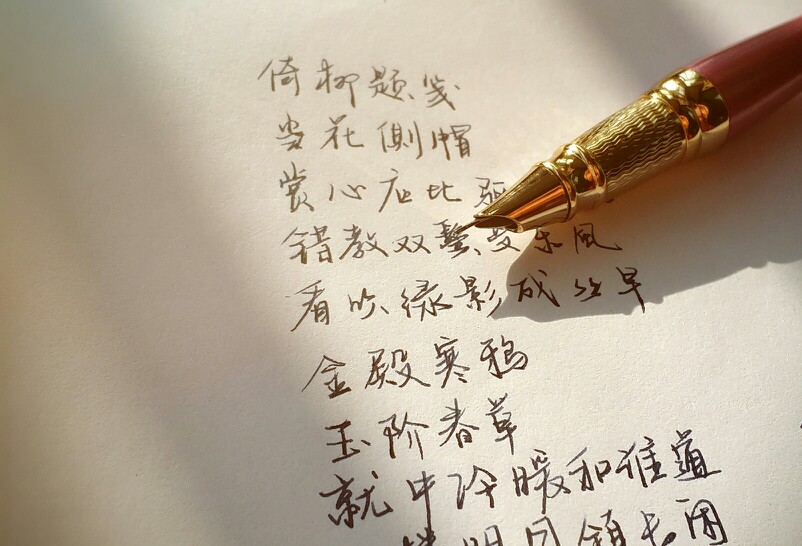 倚柳题笺
当花侧帽
赏心应比
错教双鬓受东风
看吹绿影成丝早
金殿寒鸦
玉阶春草
就中冷暖和谁道
楼明月镇长闲